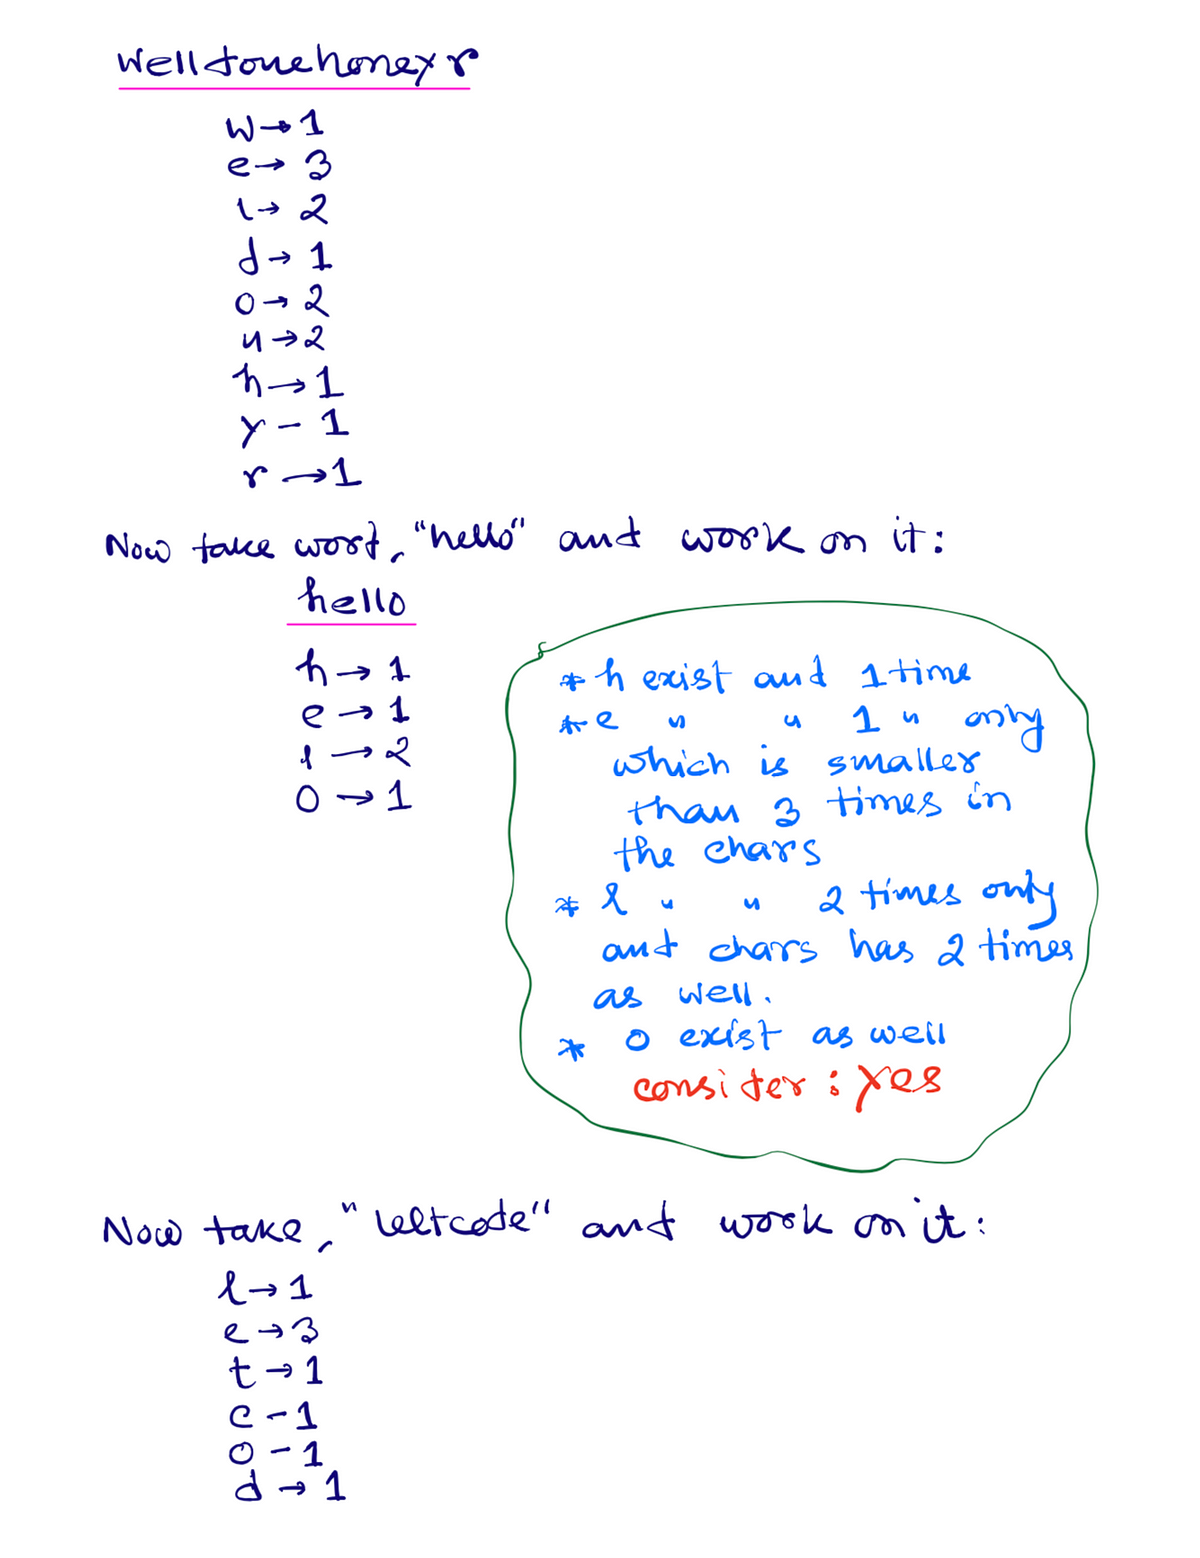 welldonehoneyr
w→1
e→3
l→2
d→1
o→2
n→2
h→1
y-1
r→1
Now take word, "hello" and work on it:
hello
h→1
e→1
l→2
o→1
* h exist and 1 time
* e " " 1 " only
which is smaller
than 3 times in
the chars
* l " " 2 times only
and chars has 2 times
as well.
* o exist as well
consider : yes
Now take, "leetcode" and work on it:
l→1
e→3
t→1
c-1
o-1
d→1